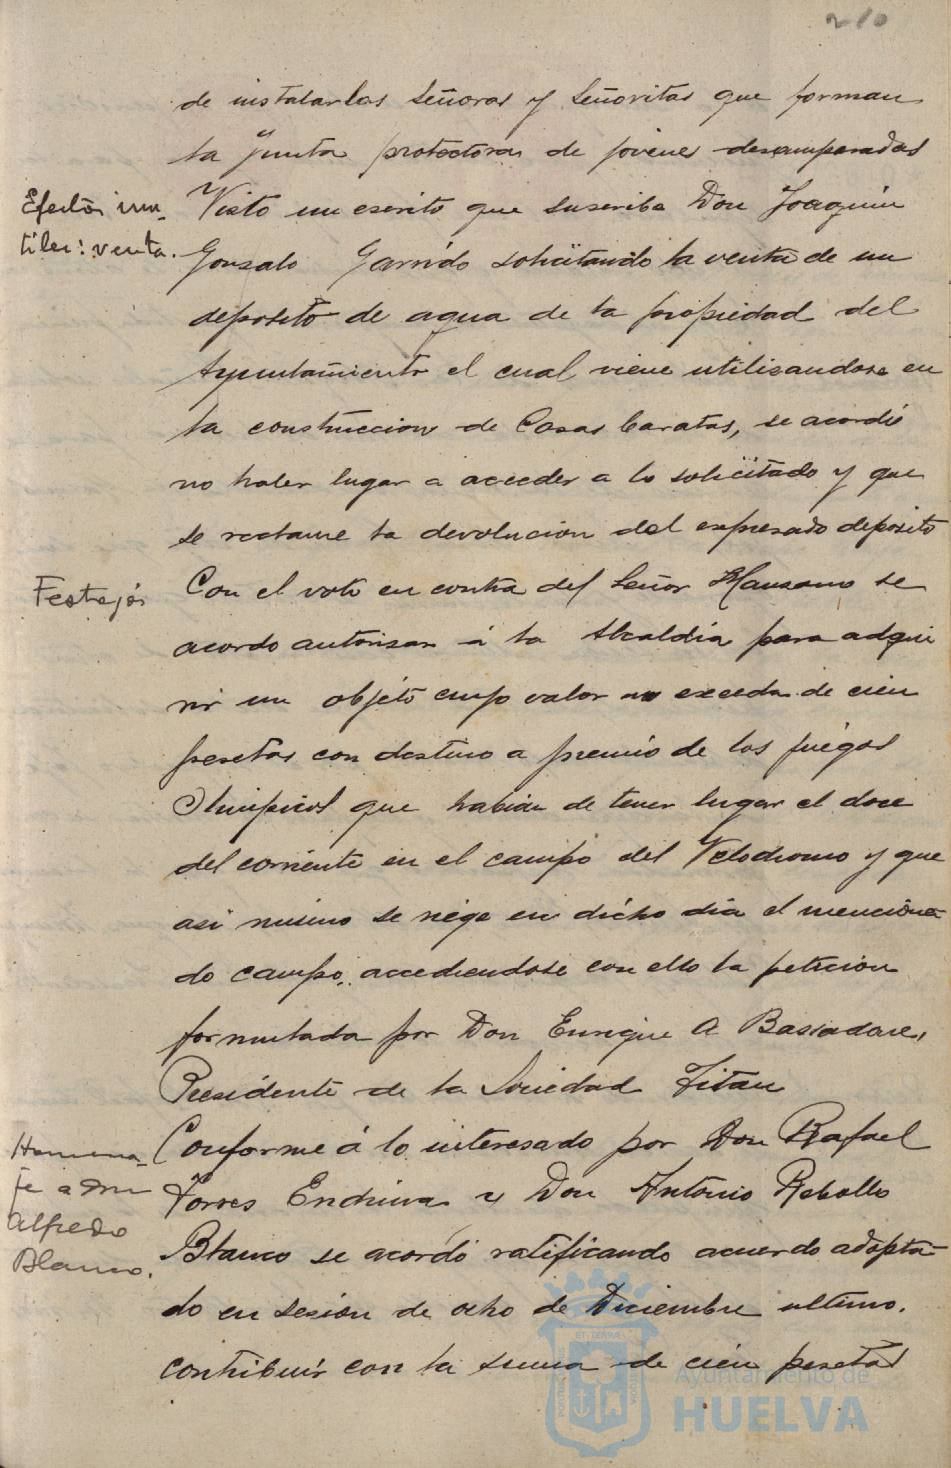 210
de instalar las Señoras y Señoritas que forman
la Junta protectora de jóvenes desamparadas
Efectos inu-
tiles: venta.
Visto un escrito que suscribe Don Joaquin
Gonzalo Garrido solicitando la venta de un
deposito de agua de la propiedad del
Ayuntamiento el cual viene utilisandose en
la construccion de Casas baratas, se acordó
no haber lugar a acceder a lo solicitado y que
se reclame la devolucion del expresado deposito
Festejos
Con el voto en contra del Señor Manzano se
acordo autorisar á la Alcaldia para adqui
rir un objeto cuyo valor no exceda de cien
pesetas con destino a premio de los juegos
Olimpicos que habian de tener lugar el doce
del corriente en el campo del Velodromo y que
asi mismo se riege en dicho dia el menciona-
do campo, accediendose con ello la peticion
formulada por Don Enrique A Bassadone,
Presidente de la Sociedad Titan
Homena-
je a Don
Alfredo
Blanco.
Conforme á lo interesado por Don Rafael
Torres Endrina y Don Antonio Rebollo
Blanco se acordó ratificando acuerdo adopta-
do en sesion de ocho de Diciembre ultimo.
contribuir con la suma de cien pesetas
Ayuntamiento de
HUELVA